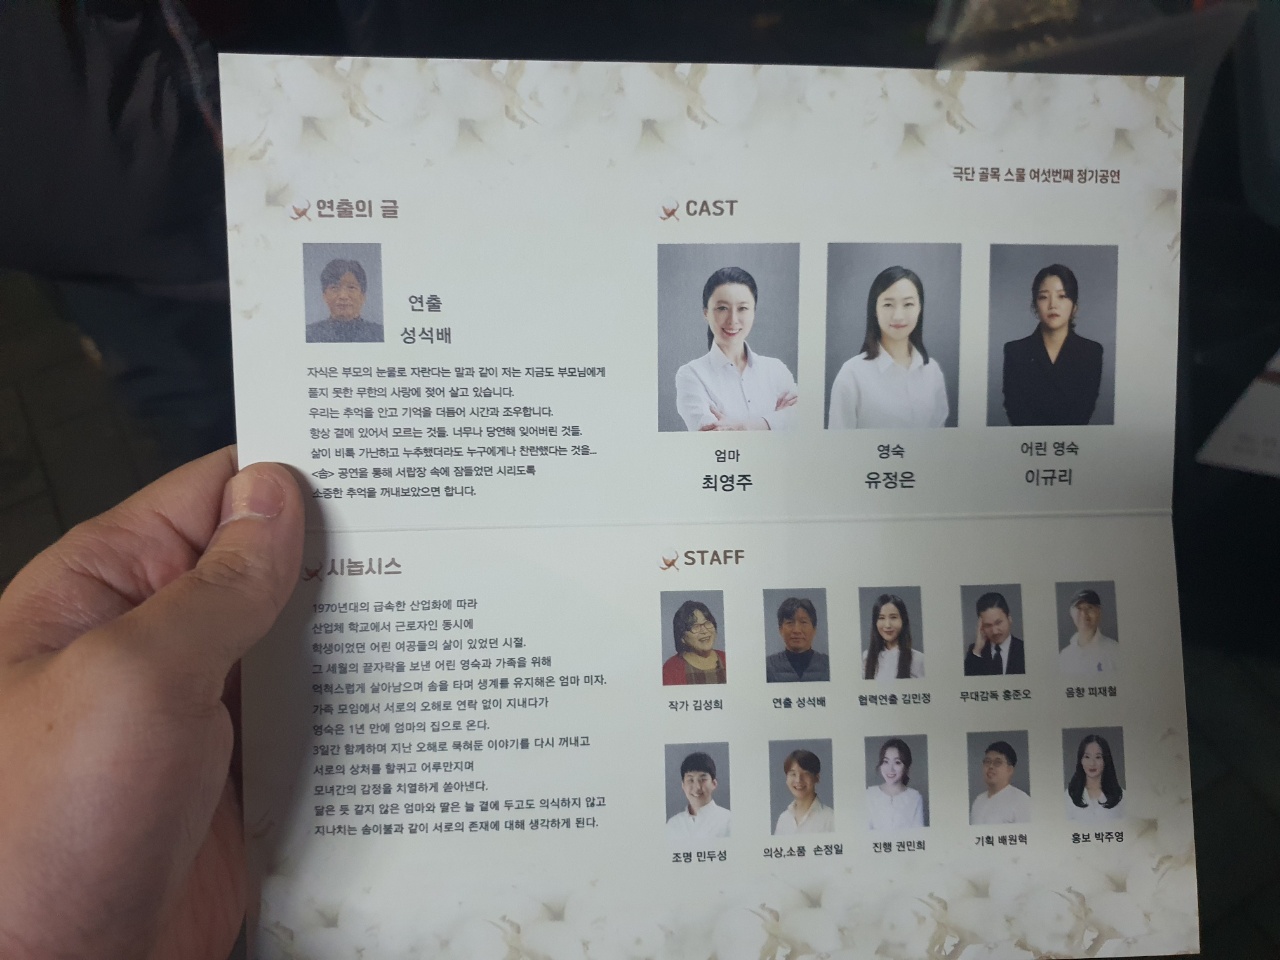 극단 골목 스쿨 여섯번째 정기공연
연출의 글
연출
성석배
자식은 부모의 눈물로 자란다는 말과 같이 저는 지금도 부모님에게
풀지 못한 무한의 사랑에 젖어 살고 있습니다.
우리는 추억을 안고 기억을 더듬어 시간과 조우합니다.
항상 곁에 있어서 모르는 것들. 너무나 당연해 잊어버린 것들.
삶이 비록 가난하고 누추했더라도 누구에게나 찬란했다는 것을...
<솜> 공연을 통해 서랍장 속에 잠들었던 시리도록
소중한 추억을 꺼내보았으면 합니다.
CAST
엄마
최영주
영숙
유정은
어린 영숙
이규리
시놉시스
1970년대의 급속한 산업화에 따라
산업체 학교에서 근로자인 동시에
학생이었던 어린 여공들의 삶이 있었던 시절.
그 세월의 끝자락을 보낸 어린 영숙과 가족을 위해
억척스럽게 살아남으며 솜을 타며 생계를 유지해온 엄마 미자.
가족 모임에서 서로의 오해로 연락 없이 지내다가
영숙은 1년 만에 엄마의 집으로 온다.
3일간 함께하며 지난 오해로 묵혀둔 이야기를 다시 꺼내고
서로의 상처를 할퀴고 어루만지며
모녀간의 감정을 치열하게 쏟아낸다.
닮은 듯 같지 않은 엄마와 딸은 늘 곁에 두고도 의식하지 않고
지나치는 솜이불과 같이 서로의 존재에 대해 생각하게 된다.
STAFF
작가 김성희
연출 성석배
협력연출 김민정
무대감독 홍준오
음향 피재철
조명 민두성
의상,소품 손정일
진행 권민희
기획 배원혁
홍보 박주영